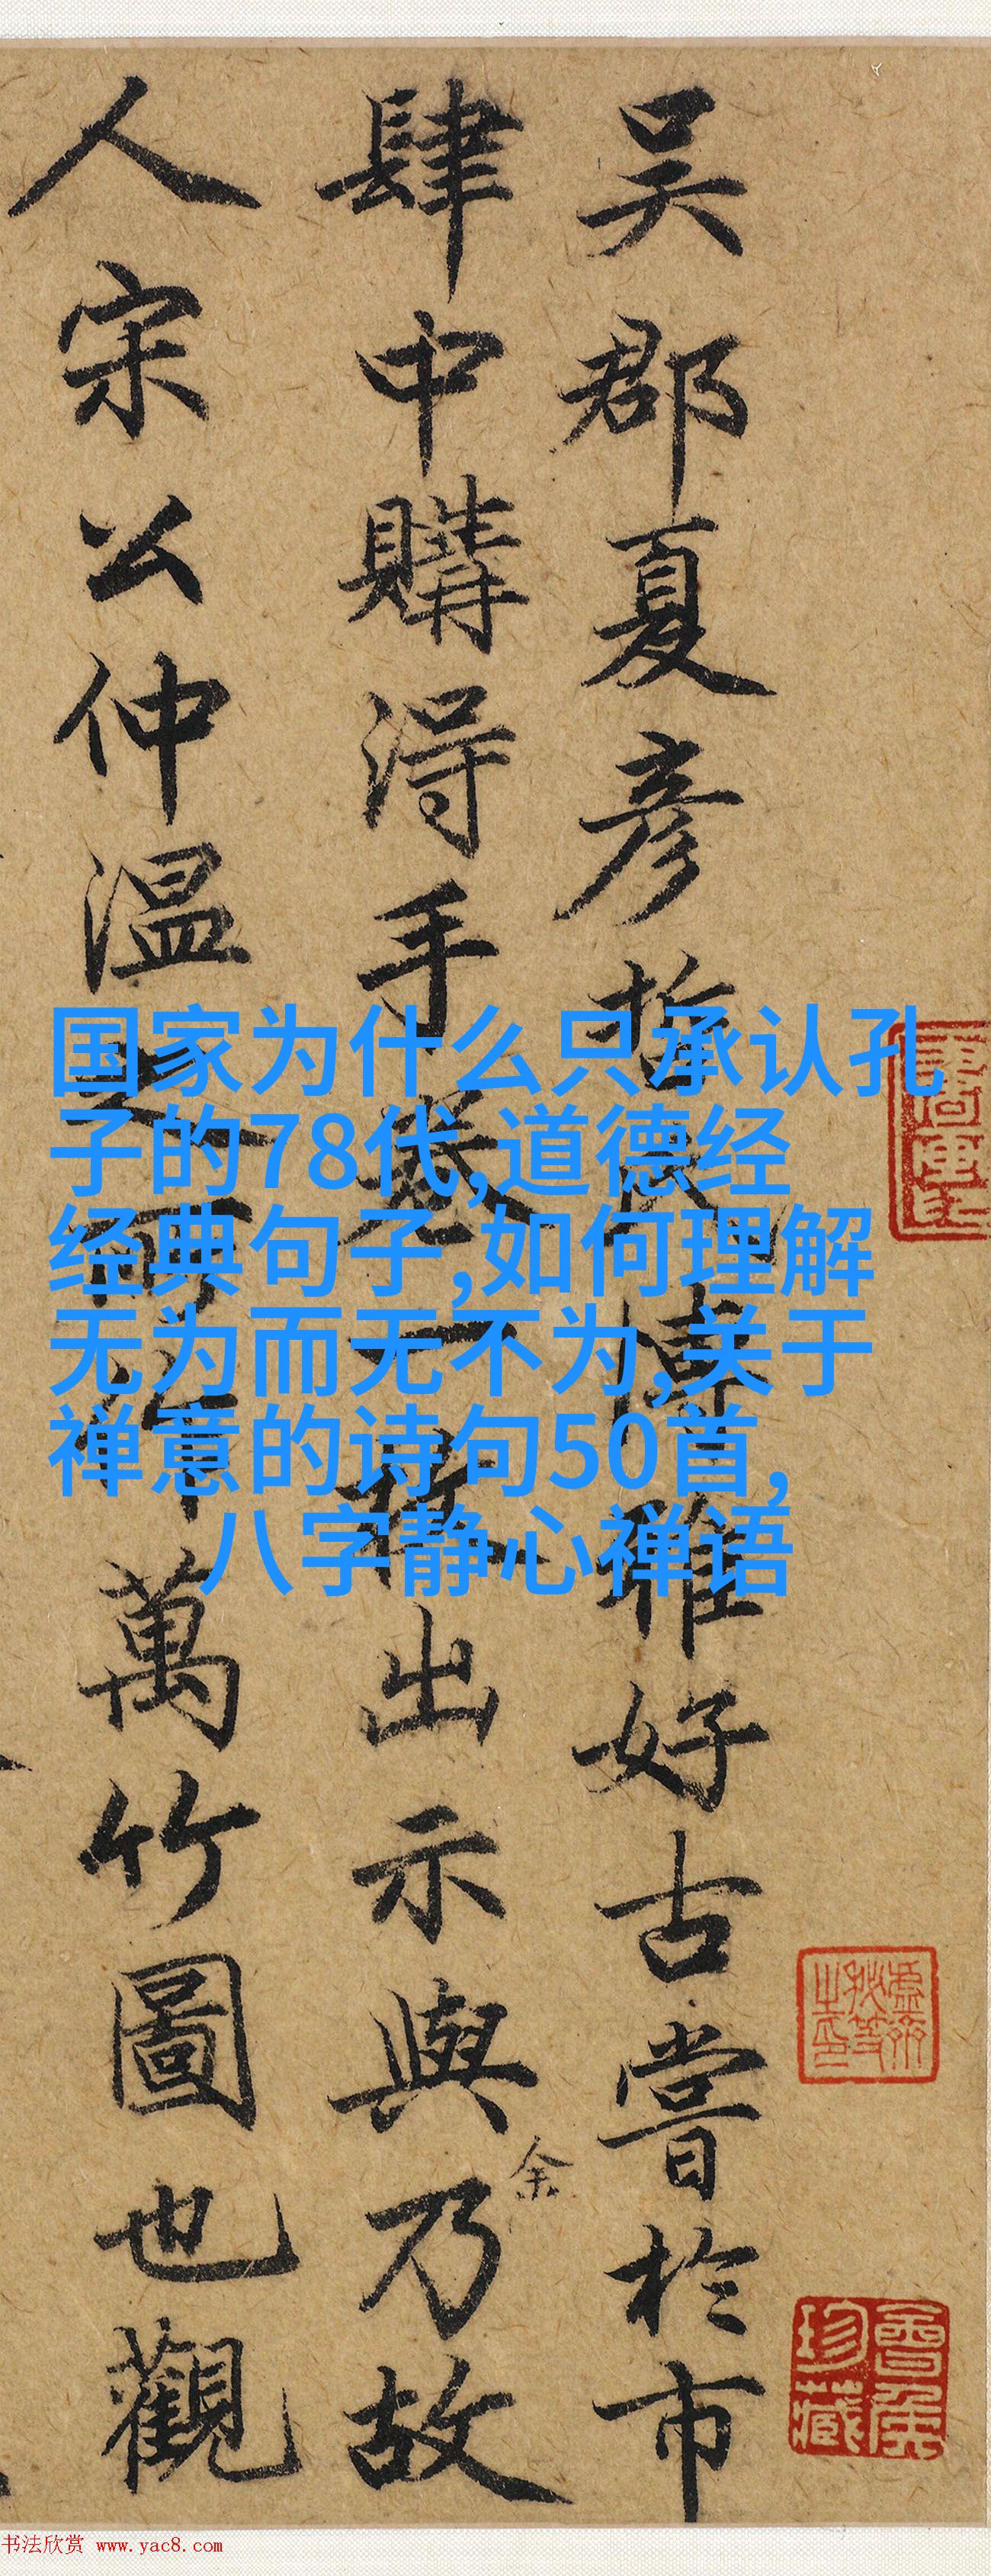 吴郡夏彦
雅好古嘗於市
肆中購得手
卷一
出示與余乃故
人宋公仲温之
萬竹圖也觀
国家为什么只承认孔
子的78代,道德经
经典句子,如何理解
无为而无不为,关于
禅意的诗句50首,
八字静心禅语
珍藏
书法欣赏 www.yac8.com